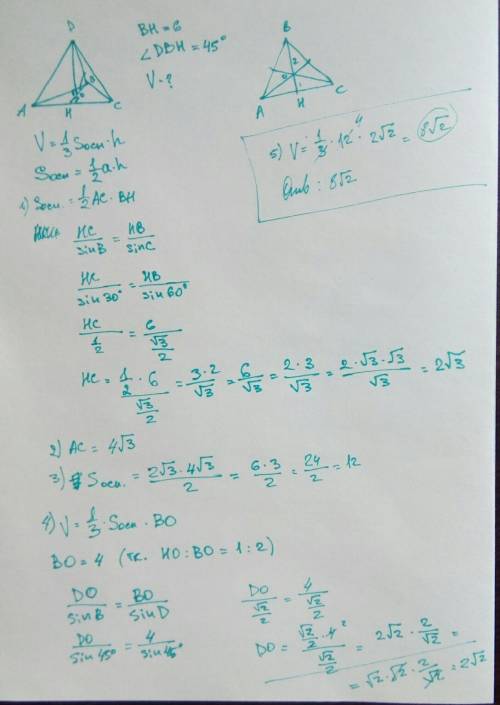 D
A
H
C
BH = 6
∠DBH = 45°
V - ?
B
2
1
A
H
C
V = 1/3 Sосн · h
Sосн = 1/2 a · h
1) Sосн = 1/2 AC · BH
HC/sinB = HB/sinC
HC/sin30° = HB/sin60°
HC/(1/2) = 6/(√3/2)
HC = (1/2 · 6)/(√3/2) = 3·2/√3 = 6/√3 = 2·3/√3 = 2·√3·√3/√3 = 2√3
2) AC = 4√3
3) Sосн. = 2√3·4√3/2 = 6·3/2 = 24/2 = 12
4) V = 1/3 · Sосн · BO
BO = 4 (т.к. HO : BO = 1 : 2)
DO/sinB = BO/sinD
DO/sin45° = 4/sin45°
DO/(√2/2) = 4/(√2/2)
DO = (√2/2 · 4)/(√2/2) = 2√2 · 2/√2 =
= √2 · √2 · 2/√2 = 2√2
5) V = 1/3 · 12 4 · 2√2 = 8√2
Отв : 8√2